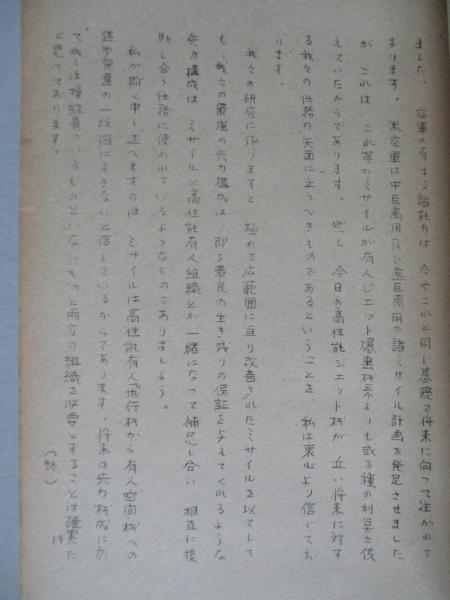 ました。 空軍の有する諸能力は 今やこれと同じ基礎で将来に向って注がれて
おります。 米空軍は中巨離用及び遠巨離用の諸ミサイル計画を発足させました
が、これは これ等のミサイルが有人ジェット爆撃機よりも或る種の利点を供
えていたからであります。 然し 今日の高性能ジェット機が 近い将来に対す
る我々の任務の矢面に立つべきものであるということを 私は衷心より信じてお
ります。
我々の研究に依りますと 極めて広範囲に亘り改善されたミサイルを以てして
も、我々の最優の兵力構成は、即ち最良の生き残りの保証を与えてくれるような
兵力構成は ミサイルと高性能有人組織とが一緒になって補足し合い 相互に援
助し合う任務に使われているようなものでありましょう。
私が斯く申し述べますのは ミサイルは高性能有人飛行機から有人空間機への
進歩発達の一段階にすぎないと信じているからであります。将来の兵力構成に於
て我々は操縦員のいるものといないものと両方の組織を必要とすることは確実だ
と思っております。
（終）
19